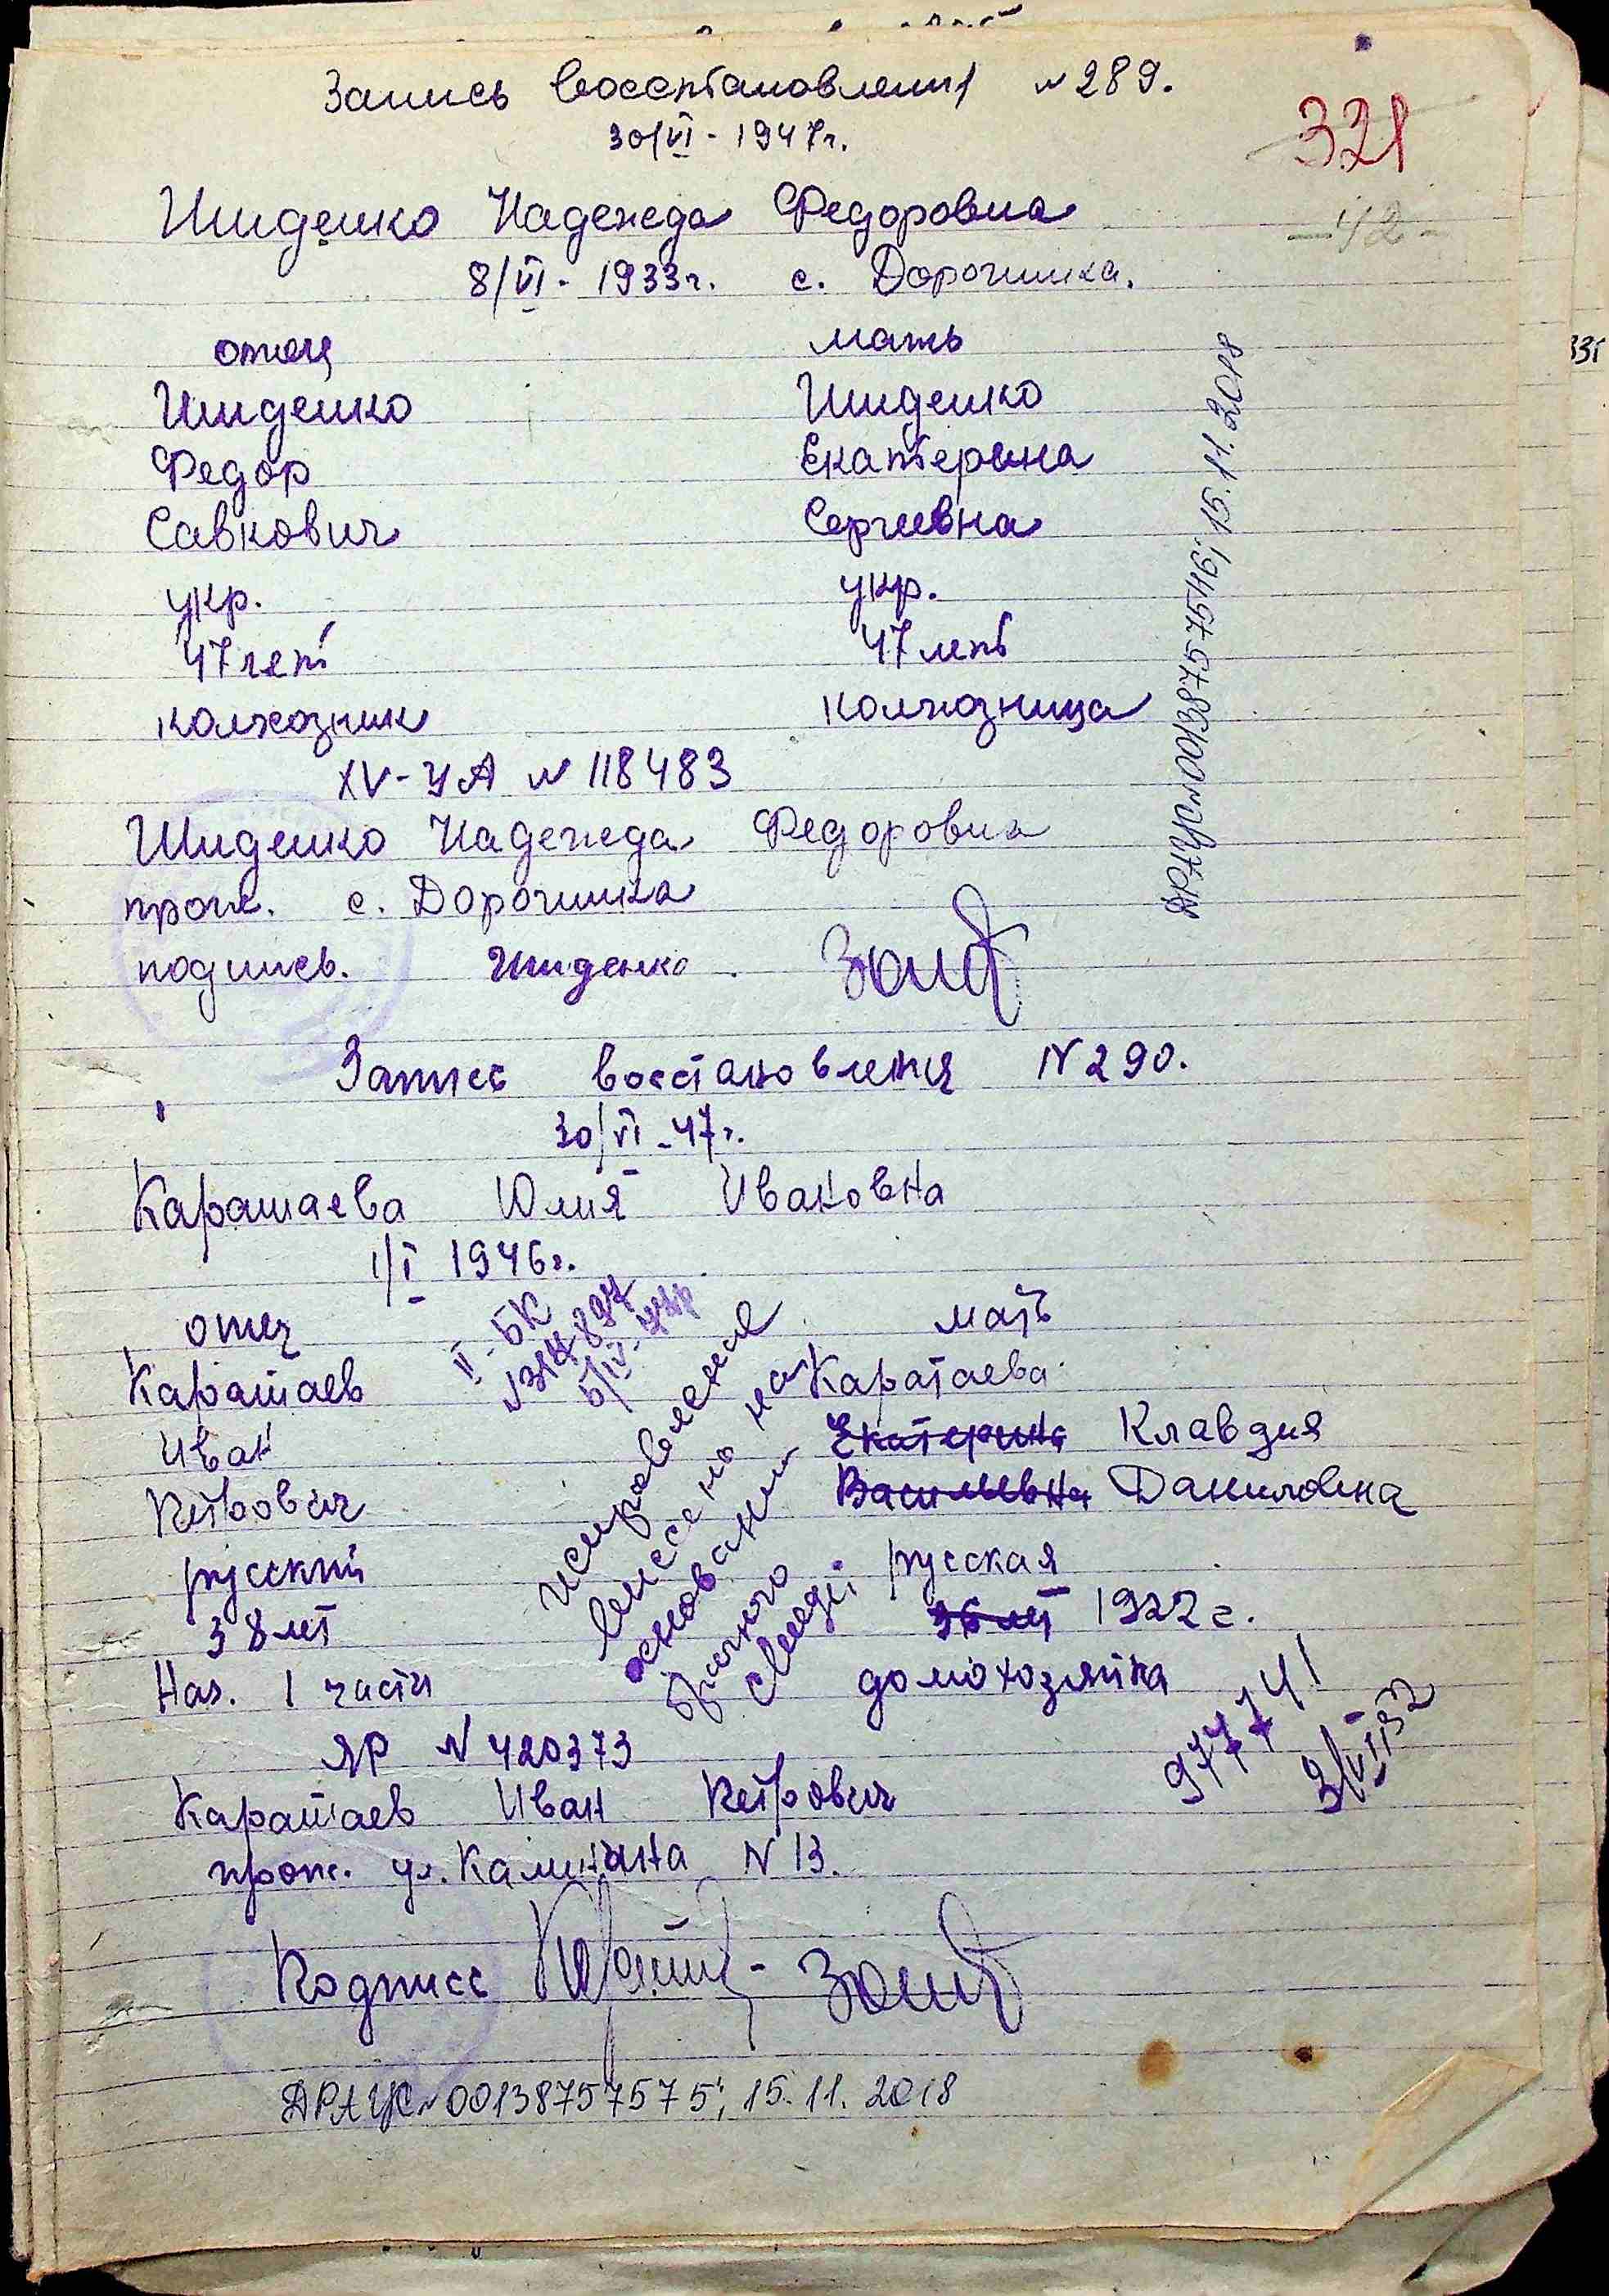 Запись восстановления № 289.
30/VI - 1947г.
321
- 42 -
Шиденко Надежда Федоровна
8/VI - 1933г. с. Дорогинка.
отец мать
Шиденко Шиденко
Федор Екатерина
Савкович Сергеевна
укр. укр.
47 лет 47 лет
колхозник колхозница
XV-УА № 118483
Шиденко Надежда Федоровна
прож. с. Дорогинка
подпись. Шиденко
ДРАЦС №00138757546, 15.11.2018
Запись восстановления N 290.
30/VI - 47г.
Каратаева Юлия Ивановна
1/I 1946г.
II - БК
отец мать
Каратаев Каратаева
Иван Екатерина Клавдия
Петрович Васильевна Даниловна
русский русская
38 лет 36 лет 1922 г.
Наз. 1 части домохозяйка
исправления
внесено на
основании
брачного
свид.
ЯР N 420373
977741
3/VII 52
Каратаев Иван Петрович
прож. ул. Калинина N 13.
Подпись
ДРАЦС №00138757575; 15.11.2018